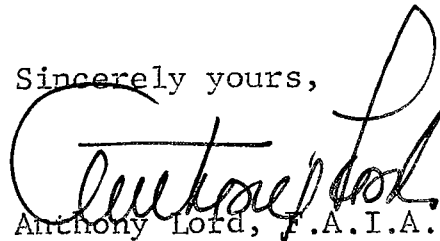 Sincerely yours,
Anthony Lord
Anthony Lord, F.A.I.A.